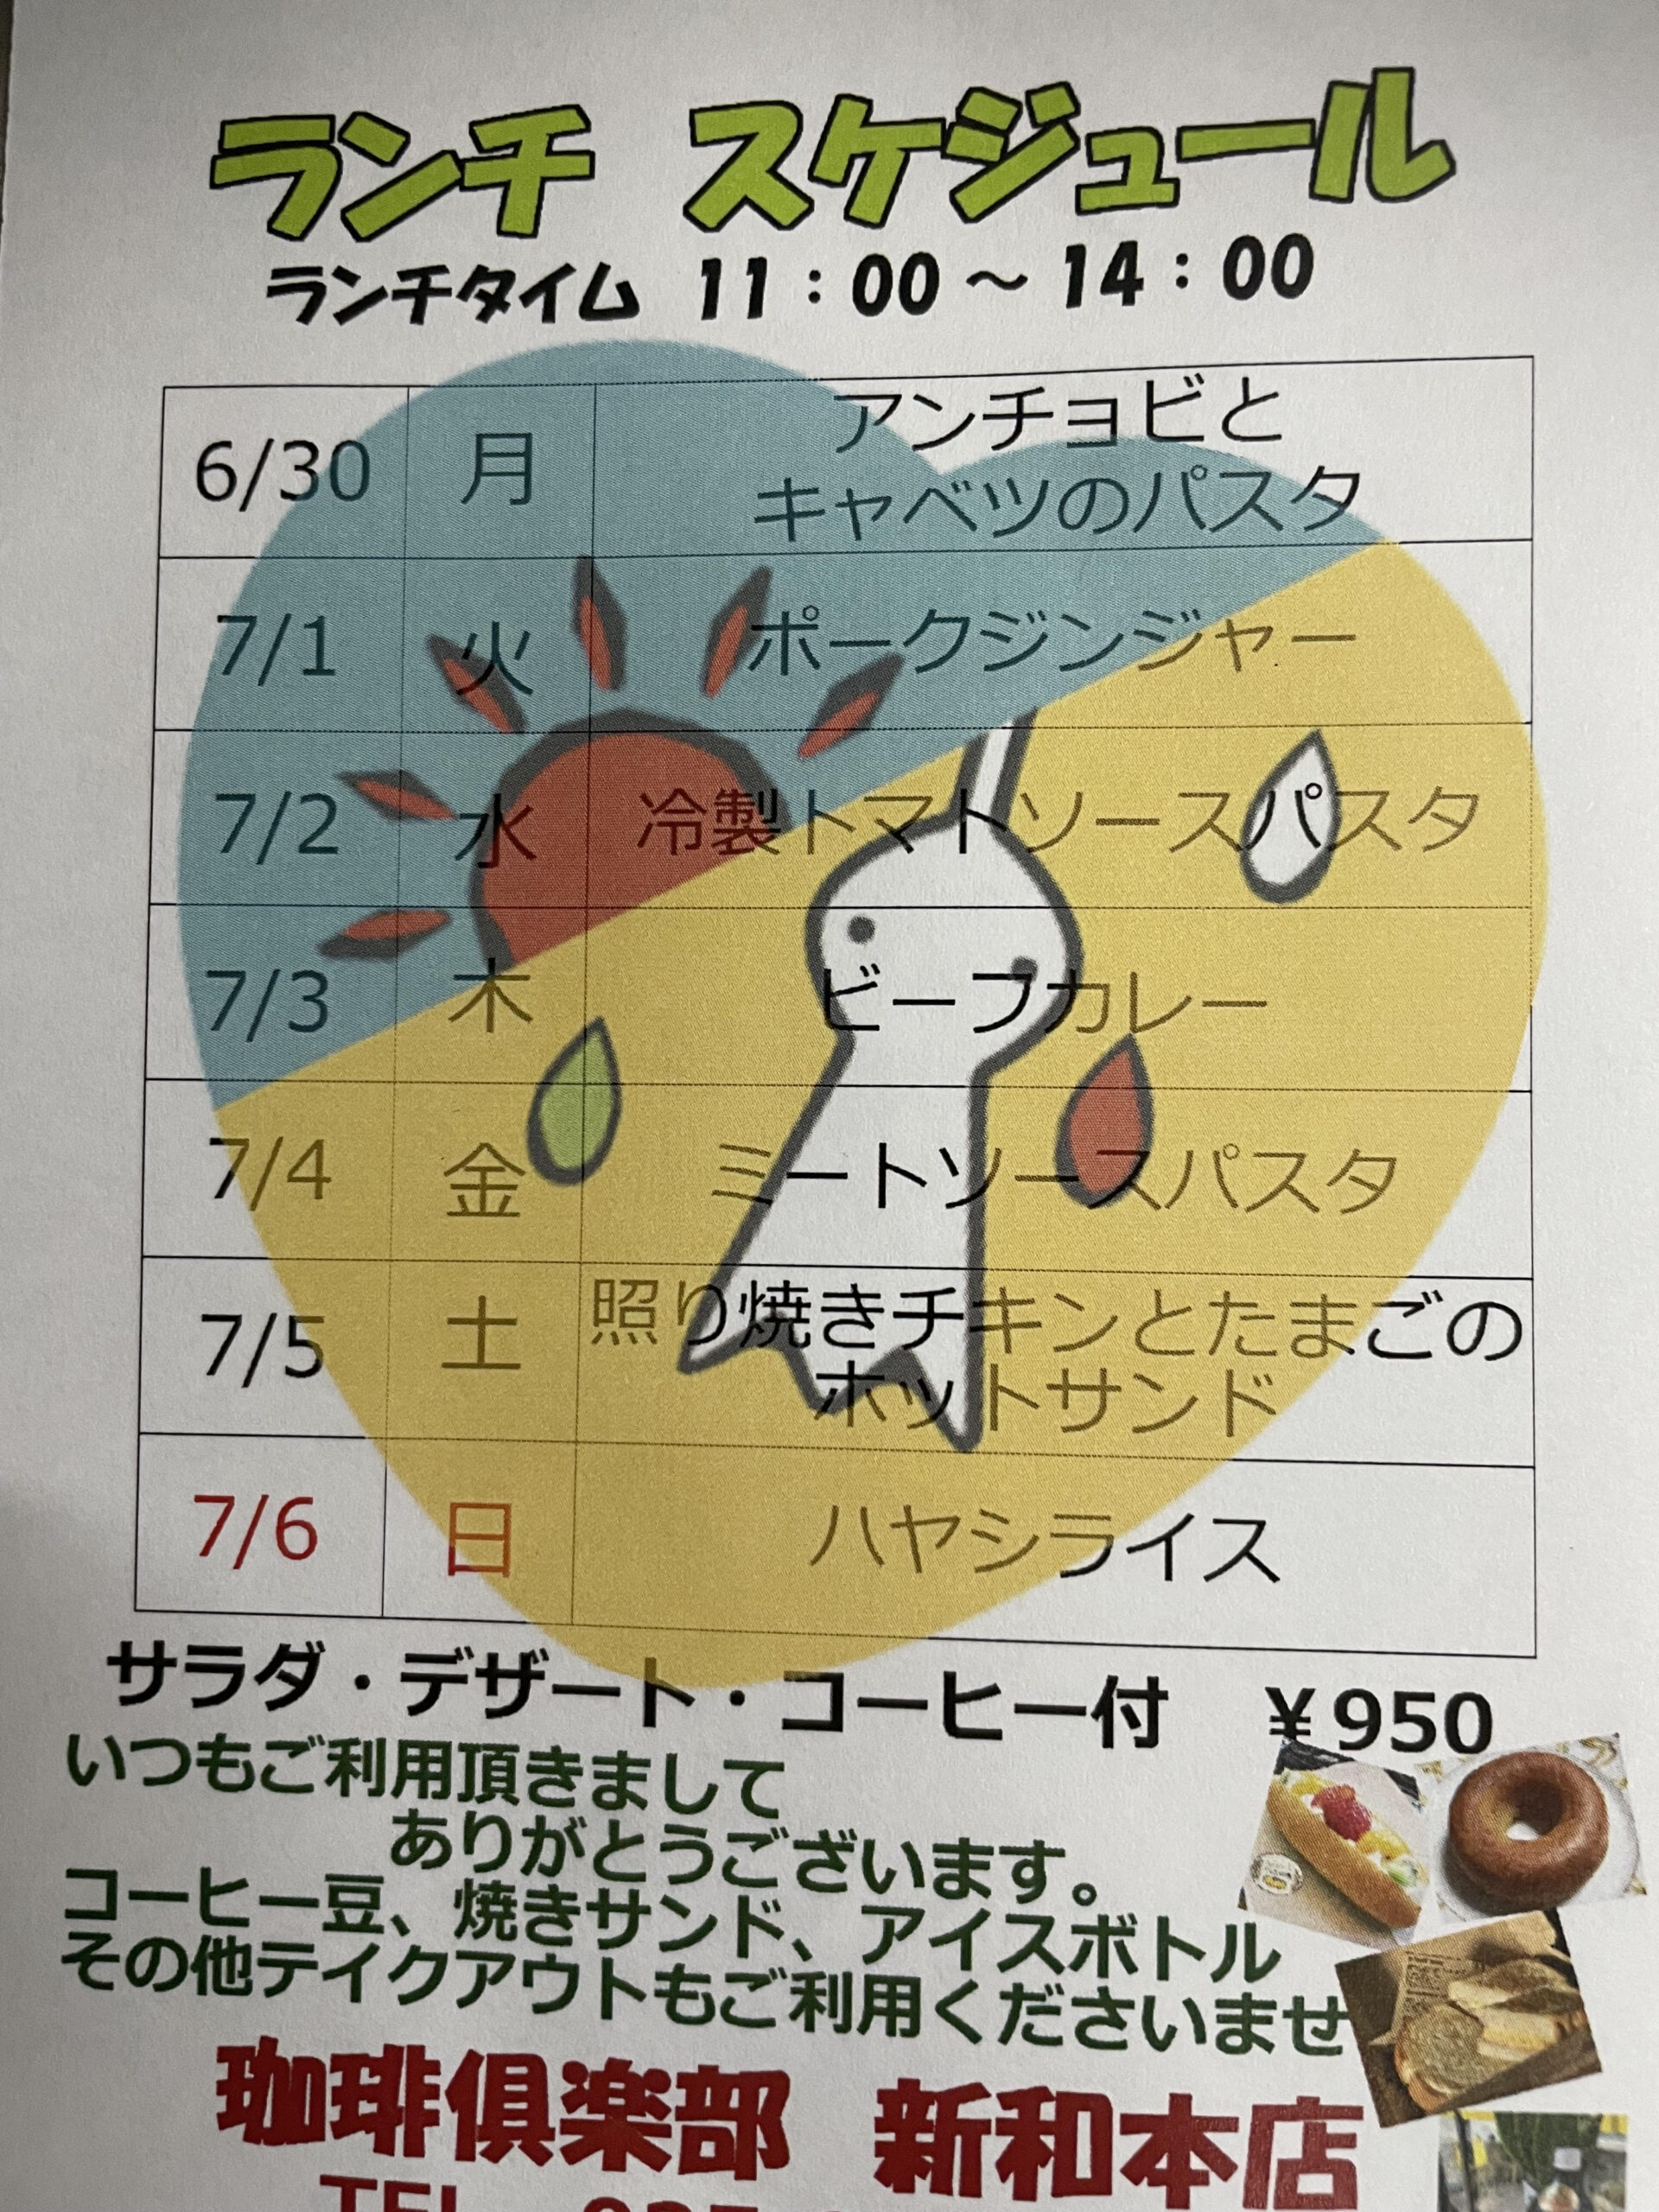 ランチ スケジュール
ランチタイム 11：00～14：00
6/30 月 アンチョビと
キャベツのパスタ
7/1 火 ポークジンジャー
7/2 水 冷製トマトソースパスタ
7/3 木 ビーフカレー
7/4 金 ミートソースパスタ
7/5 土 照り焼きチキンとたまごの
ホットサンド
7/6 日 ハヤシライス
サラダ・デザート・コーヒー付 ￥950
いつもご利用頂きまして
ありがとうございます。
コーヒー豆、焼きサンド、アイスボトル
その他テイクアウトもご利用くださいませ
珈琲倶楽部 新和本店
TEL